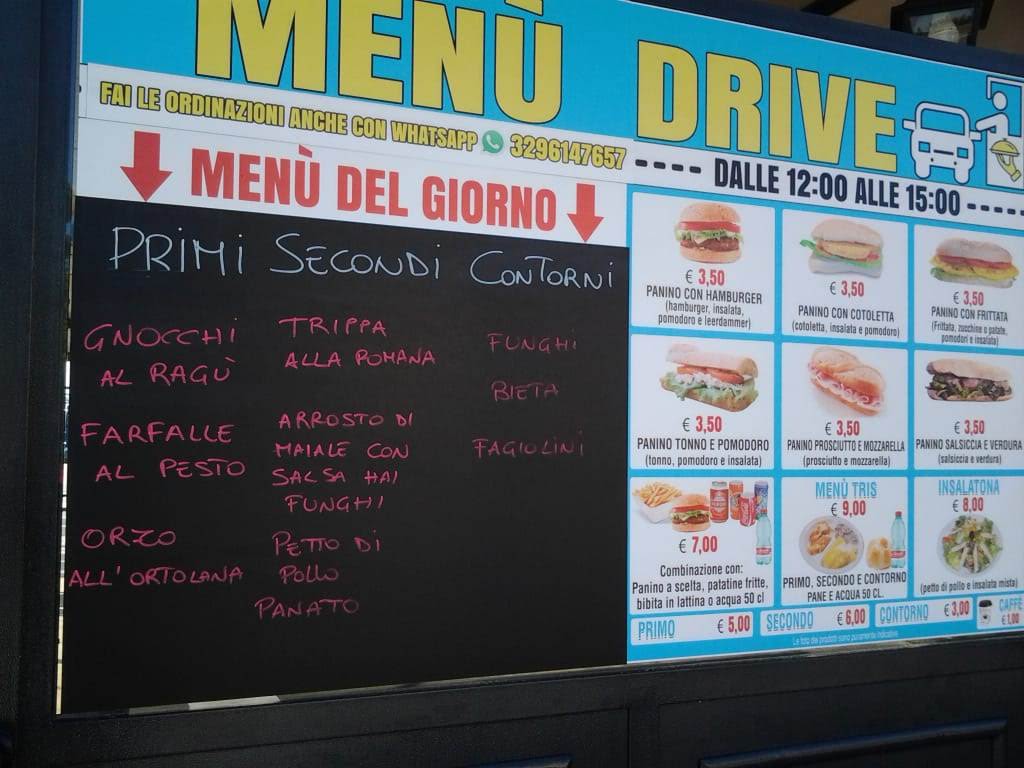 MENÙ DRIVE
FAI LE ORDINAZIONI ANCHE CON WHATSAPP 3296147657
DALLE 12:00 ALLE 15:00
MENÙ DEL GIORNO
PRIMI
GNOCCHI
AL RAGÙ
FARFALLE
AL PESTO
ORZO
ALL'ORTOLANA
SECONDI
TRIPPA
ALLA ROMANA
ARROSTO DI
MAIALE CON
SALSA HAI
FUNGHI
PETTO DI
POLLO
PANATO
CONTORNI
FUNGHI
BIETA
FAGIOLINI
€ 3,50
PANINO CON HAMBURGER
(hamburger, insalata,
pomodoro e leerdammer)
€ 3,50
PANINO CON COTOLETTA
(cotoletta, insalata e pomodoro)
€ 3,50
PANINO CON FRITTATA
(Frittata, zucchine o patate,
pomodori e insalata)
€ 3,50
PANINO TONNO E POMODORO
(tonno, pomodoro e insalata)
€ 3,50
PANINO PROSCIUTTO E MOZZARELLA
(prosciutto e mozzarella)
€ 3,50
PANINO SALSICCIA E VERDURA
(salsiccia e verdura)
€ 7,00
Combinazione con:
Panino a scelta, patatine fritte,
bibita in lattina o acqua 50 cl
MENÙ TRIS
€ 9,00
PRIMO, SECONDO E CONTORNO
PANE E ACQUA 50 CL.
INSALATONA
€ 8,00
(petto di pollo e insalata mista)
PRIMO € 5,00
SECONDO € 6,00
CONTORNO € 3,00
CAFFÈ
€ 1,00
Le foto dei prodotti sono puramente indicative